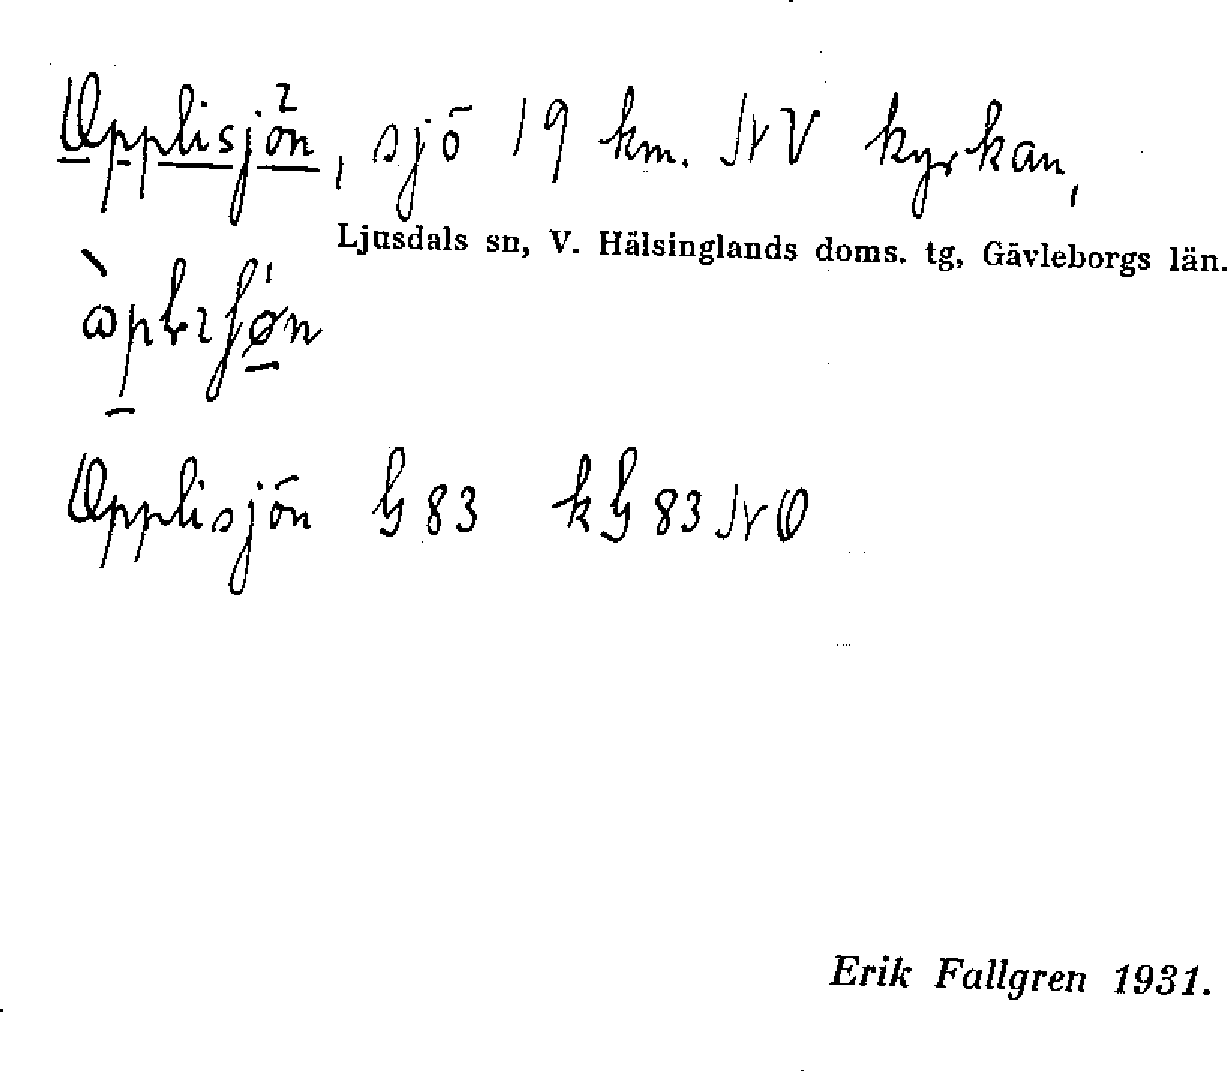 Opplisjön, sjö 19 km. NV kyrkan,
Ljusdals sn, V. Hälsinglands doms. tg, Gävleborgs län.
Opplisjön G 83 kG 83 NO
Erik Fallgren 1931.